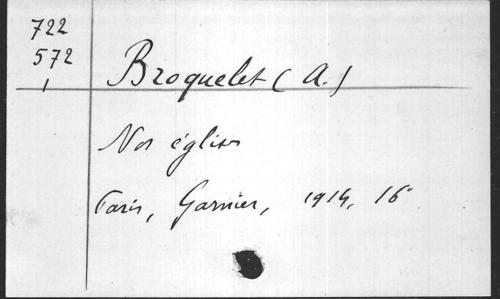 722
572
1
Broquelet (A.)
Nos églises
Paris, Garnier, 1914, 16°